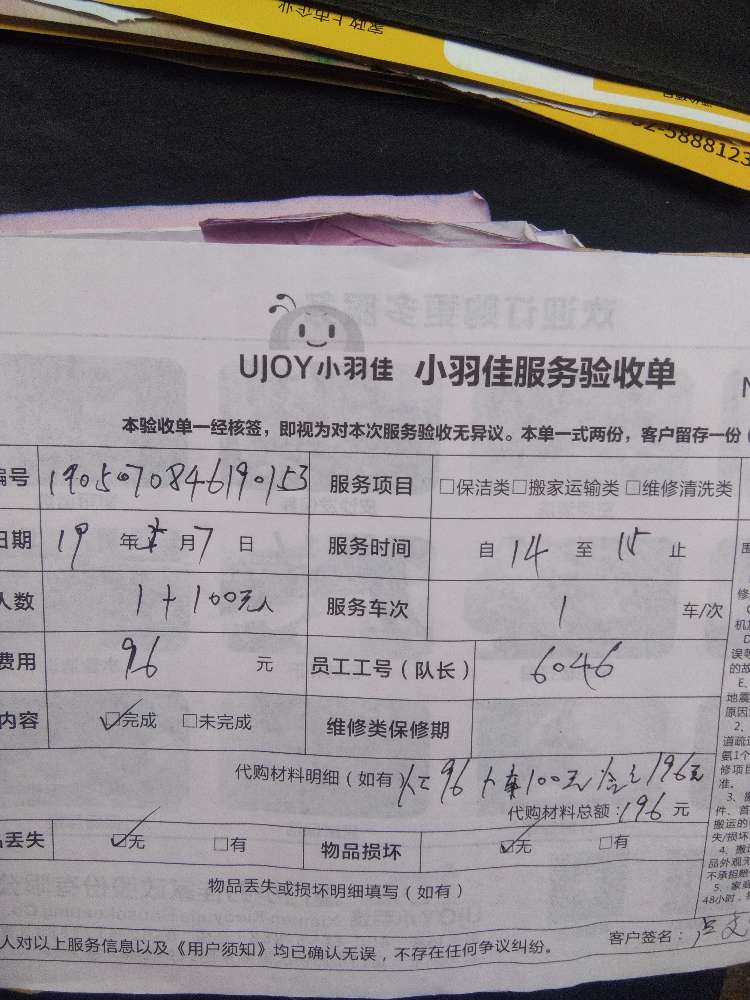 家政上市企业
52-5888123
欢迎订购更多服务
UJOY小羽佳 小羽佳服务验收单
本验收单一经核签，即视为对本次服务验收无异议。本单一式两份，客户留存一份（
编号 1905070846190153 服务项目 □保洁类□搬家运输类□维修清洗类
日期 19 年 5 月 7 日 服务时间 自 14 至 15 止
人数 1+100元 人 服务车次 1 车/次
费用 96 元 员工工号（队长） 6046
内容 ☑完成 □未完成 维修类保修期
代购材料明细（如有） 人工96+车100元 合计196元
代购材料总额：196 元
品丢失 ☑无 □有 物品损坏 ☑无 □有
物品丢失或损坏明细填写（如有）
人对以上服务信息以及《用户须知》均已确认无误，不存在任何争议纠纷。 客户签名：